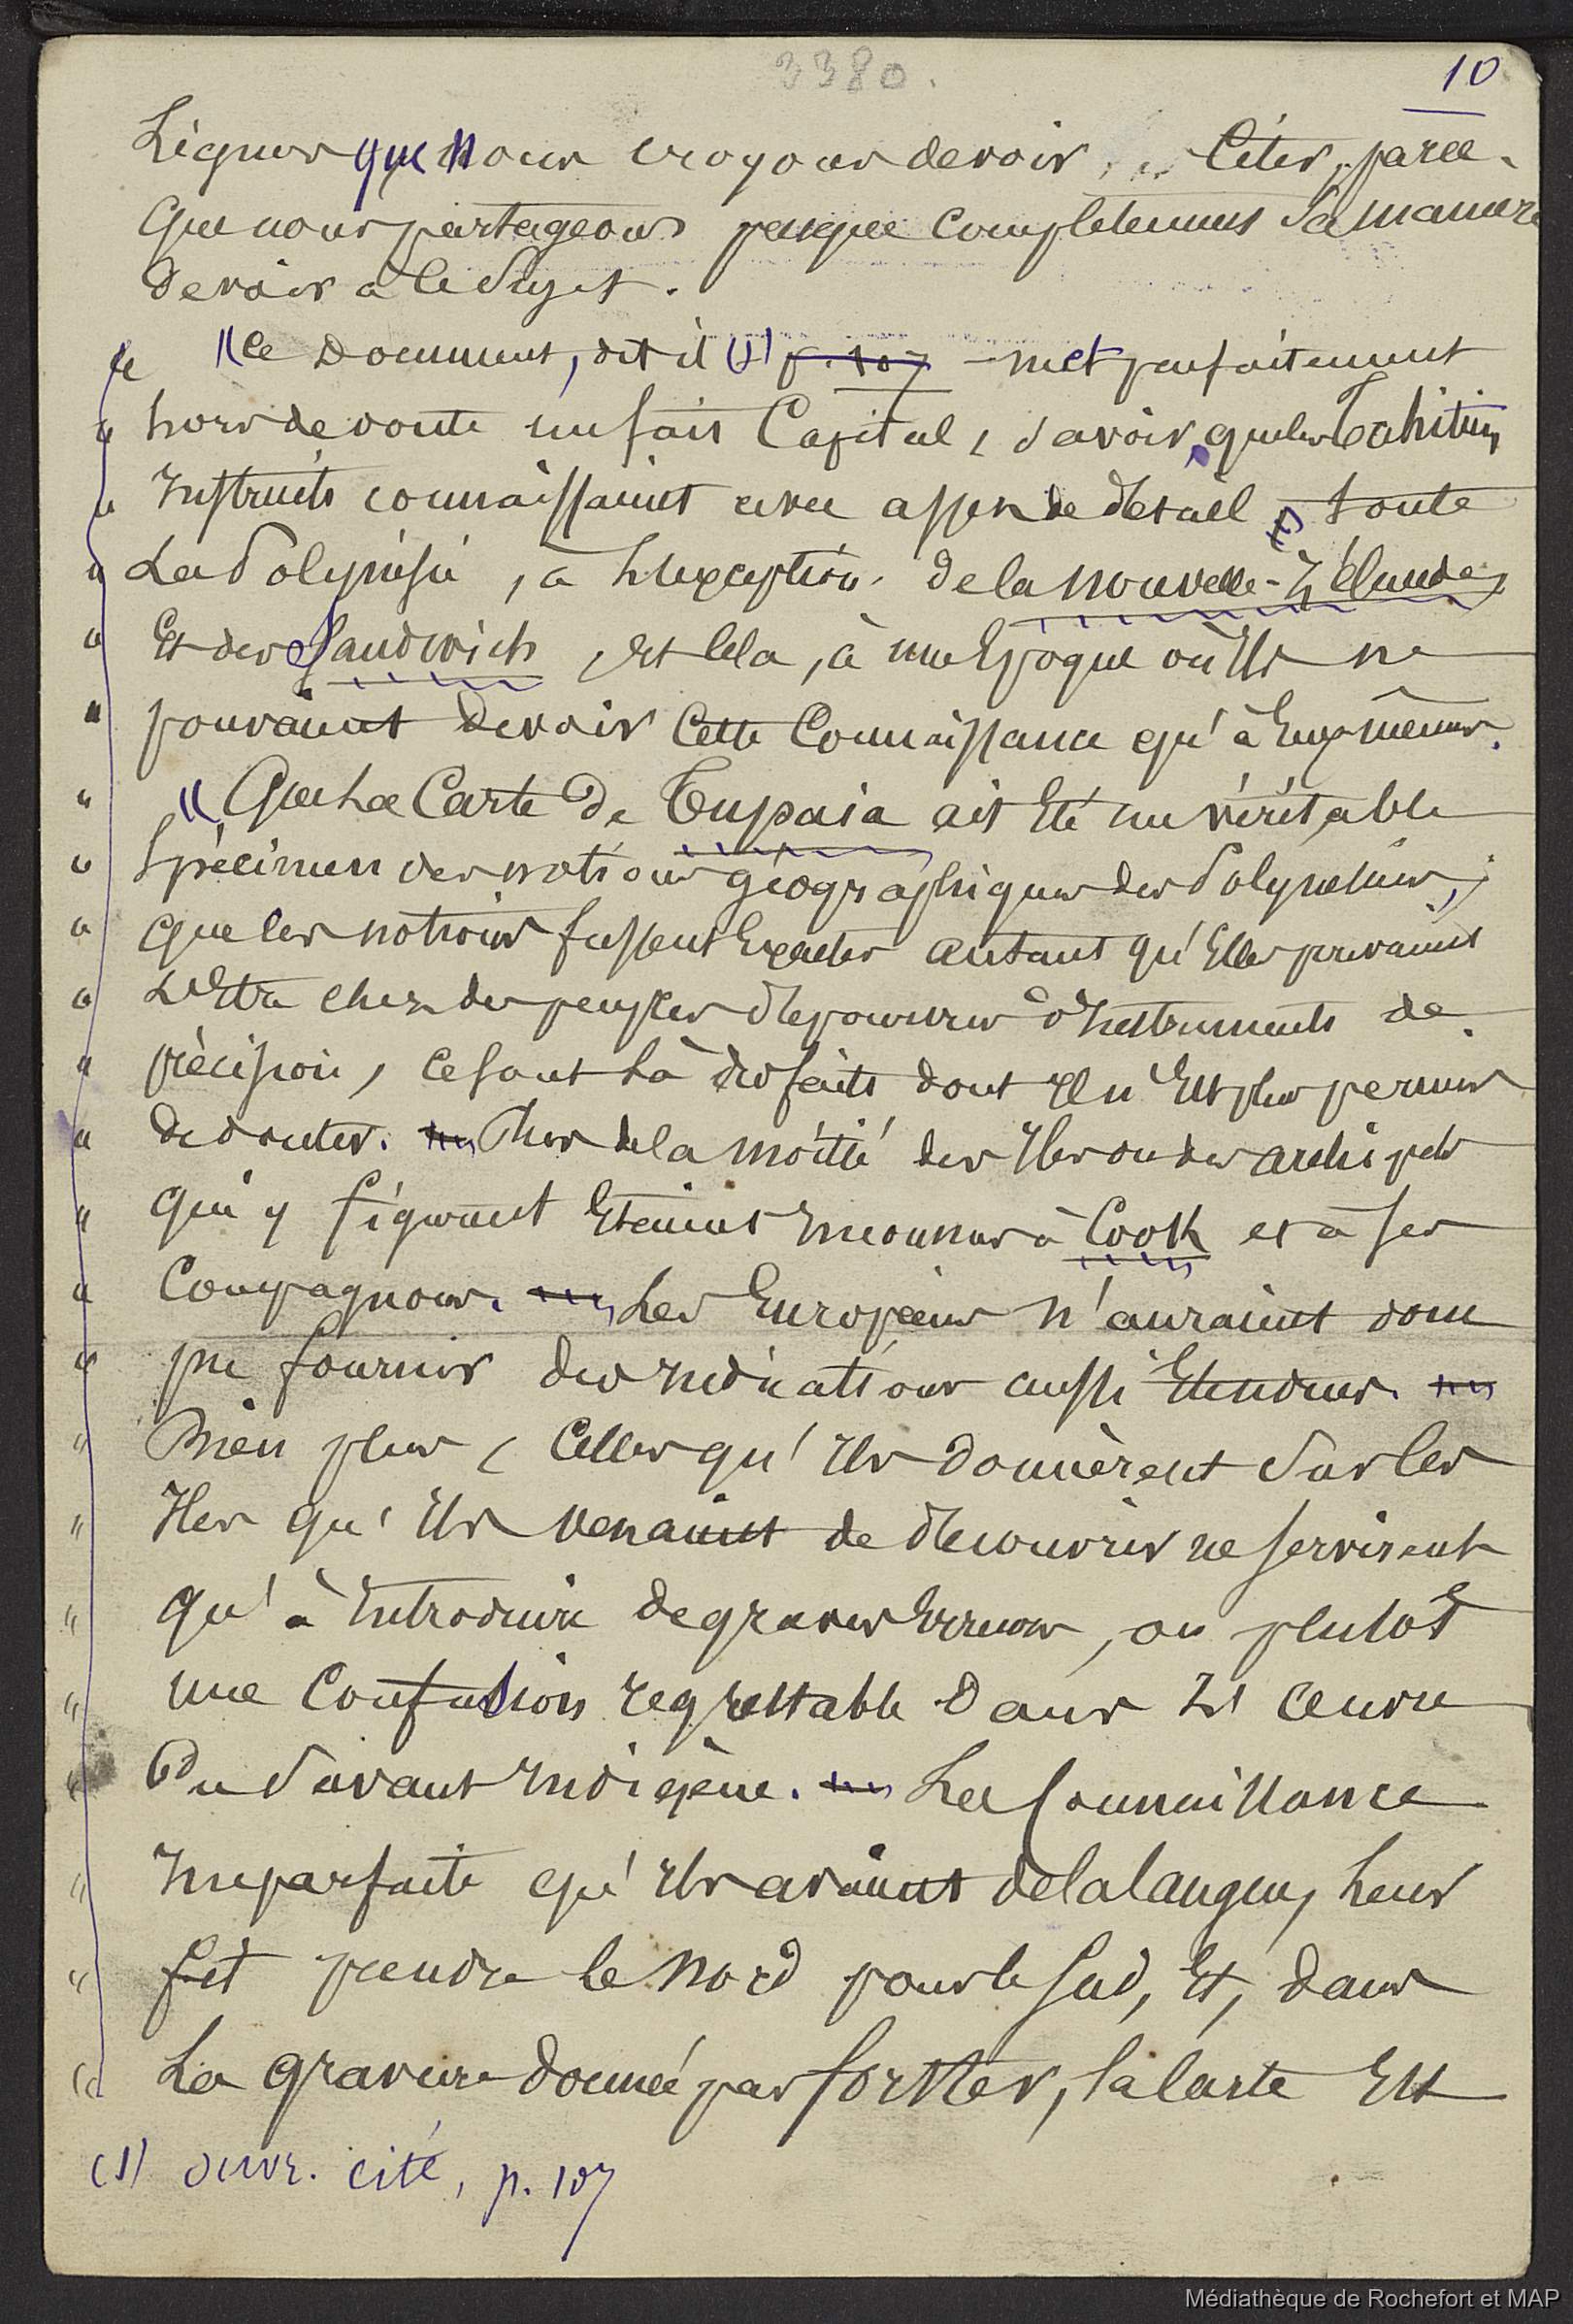 3380.
10
Lignes que nous croyons devoir citer, parce
que nous partageons presque complètement sa manière
de voir à ce sujet.
" "Ce Document, dit-il (1) p. 107 met parfaitement
" hors de doute un fait Capital, savoir, que les Tahitiens
" Instruits connaissaient avec assez de détail toute
" La Polynésie, à L'exception de la nouvelle-Zélande
" Et des Sandwich, Et cela, à une Epoque où Ils ne
" pouvaient devoir cette Connaissance qu'à Eux-mêmes.
" "Que La Carte de Tupaia ait Eté un véritable
" Spécimen des notions géographiques des Polynésiens,
" que les notions fussent Exactes autant qu'Elles pouvaient
" L'Etre chez des peuples dépourvus d'Instruments de
" précision, ce sont Là des faits dont Il n'Est plus permis
" de douter. Plus de la moitié des Iles ou des archipels
" qui y figurent Etaient Inconnus à Cook et à ses
" Compagnons. Les Européens n'auraient donc
" pu fournir des Indications aussi Etendues.
" Bien plus, Celles qu'Ils donnèrent sur les
" Iles qu'Ils venaient de découvrir ne servirent
" qu'à Introduire de graves Erreurs, ou plutôt
" une Confusion regrettable dans L'œuvre
" Du Savant Indigène. La Connaissance
" Imparfaite qu'Ils avaient de la langue, Leur
" fit prendre le nord pour le Sud, Et, dans
" La gravure donnée par forster, la carte Est
(1) ouvr. cité, p. 107
Médiathèque de Rochefort et MAP